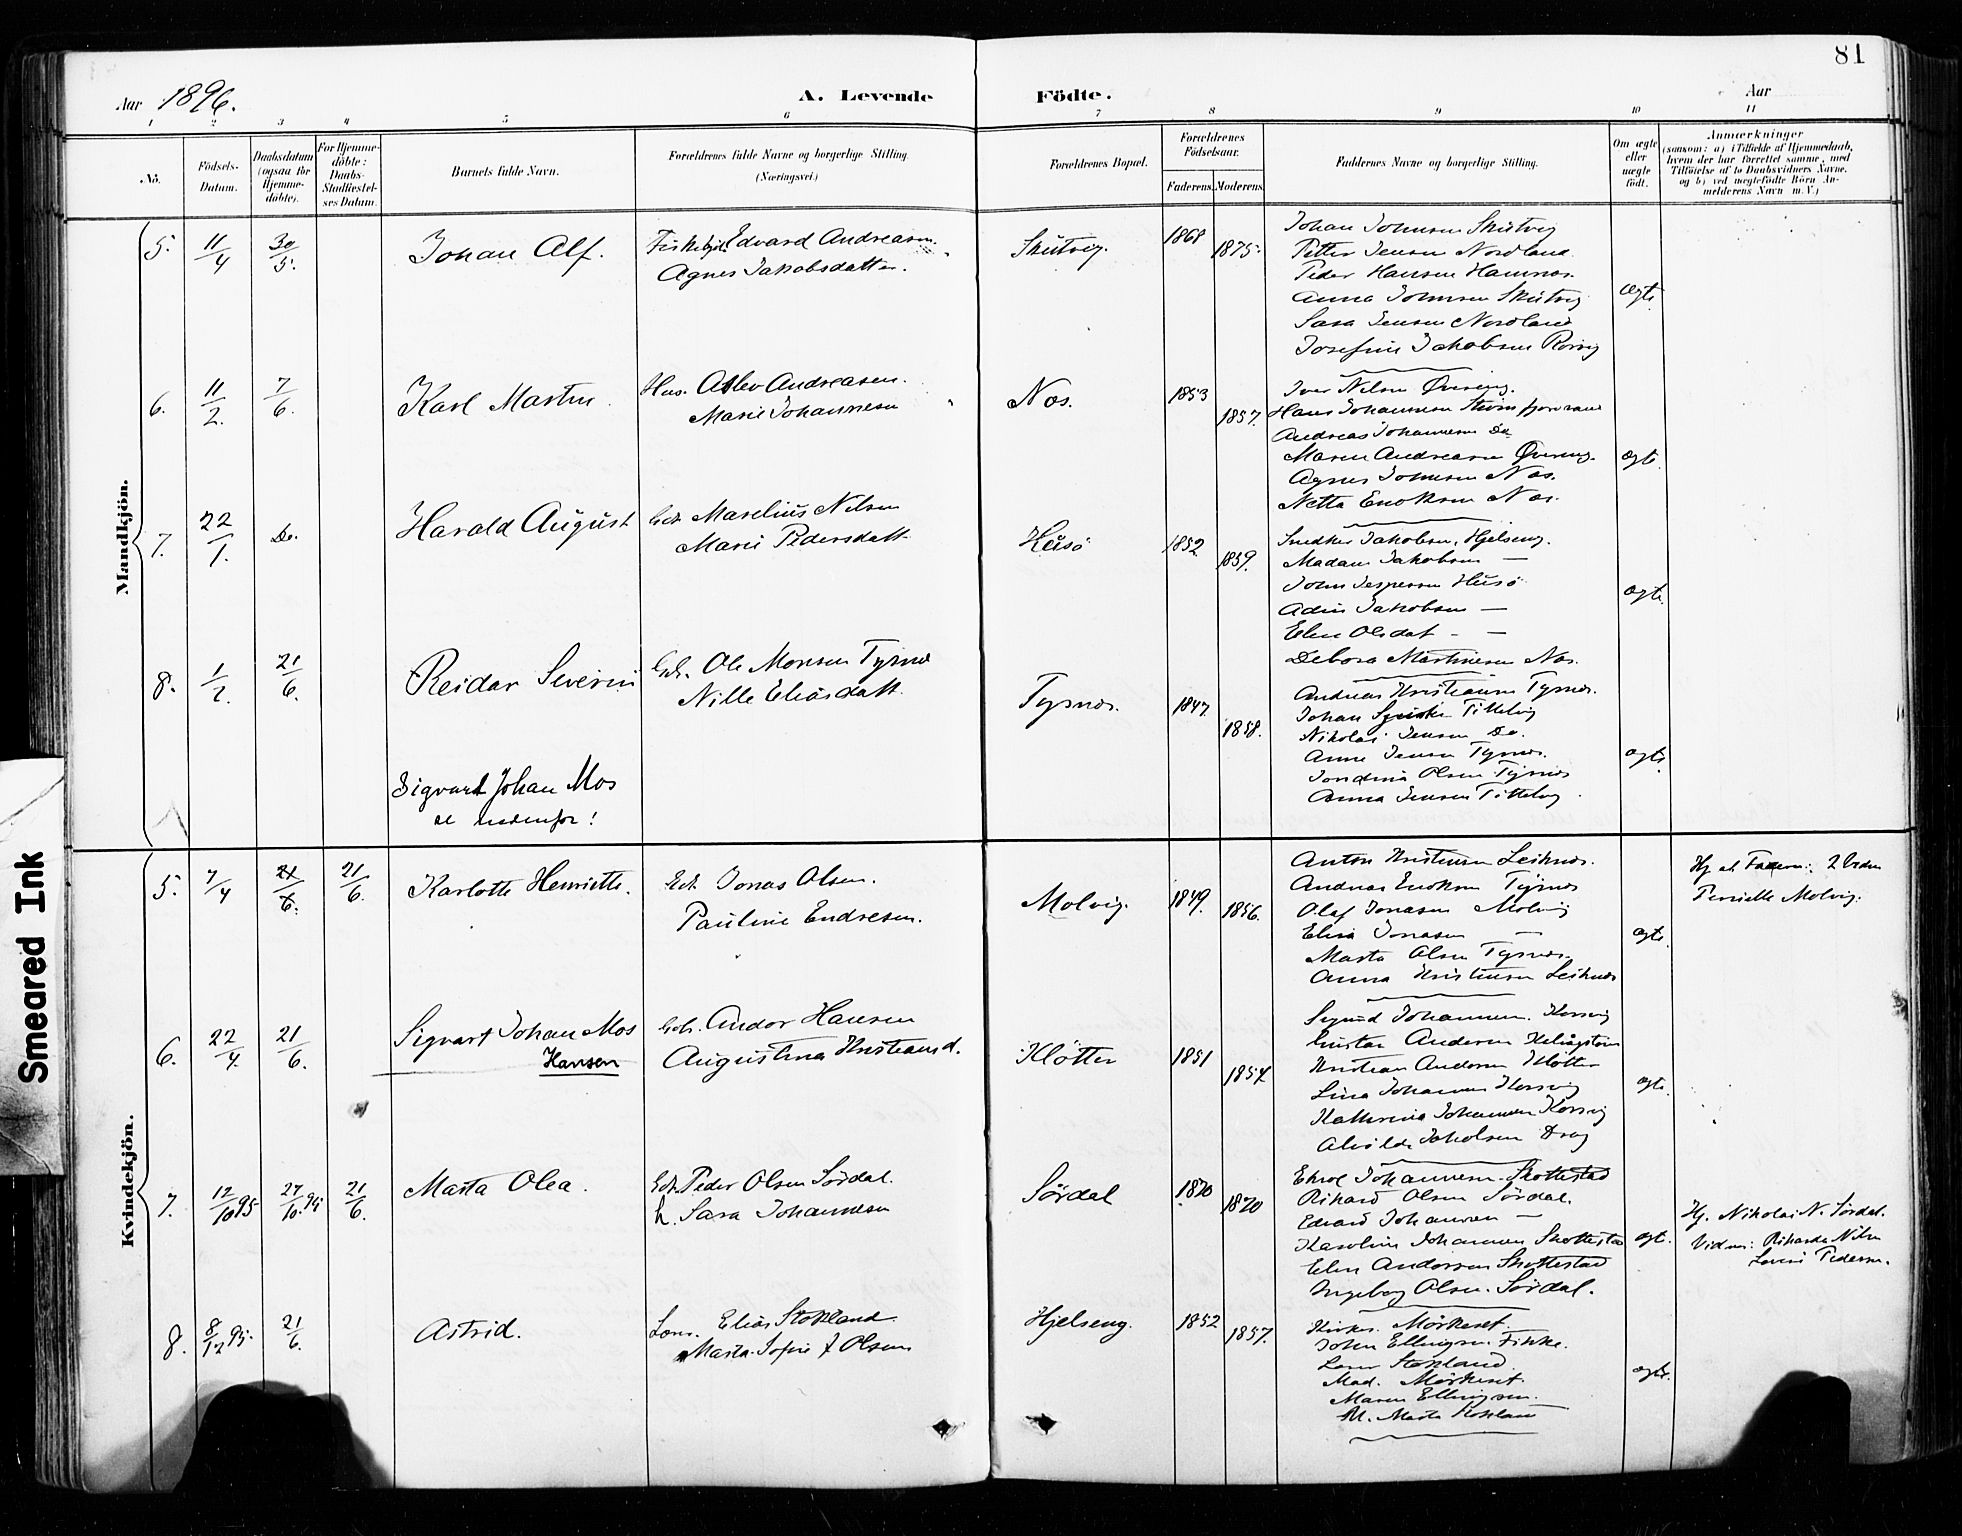 81
Aar 1896.
A. Levende Födte.
Aar
1 2 3 4 5 6 7 8 9 10 11
No.
Födsels-Datum.
Daabsdatum (ogsaa for Hjemme-döbte).
For Hjemme-döbte: Daabs-Stadfæstel-ses Datum.
Barnets fulde Navn.
Forældrenes fulde Navne og borgerlige Stilling.
(Næringsvei.)
Forældrenes Bopæl.
Forældrenes Födselsaar.
Faderens. Moderens.
Faddernes Navne og borgerlige Stilling.
Om ægte eller uægte födt.
Anmærkninger
(saasom: a) i Tilfælde af Hjemmedaab,
hvem der har forrettet samme, med
Tilföielse af to Daabsvidners Navne.
og b) ved uægtefödte Börn An-
melderens Navn m. V.)
Mandkjön.
5. 11/4 30/5. Johan Alf. Edvard Andreasen.
Agnes Jakobsdatter.
Skutvig. 1868 1875.
Johan Johnsen Skutvig
Petter Jensen Nordland.
Peder Hansen Hamnæs.
Anna Johnsen Skutvig
Sara Jensen Nordland
Josefine Jakobsen Rörvig
ægte
6. 11/2. 7/6. Karl Martin. Hus. Andreasen.
Marie Johannesen
Næs. 1853 1857.
Iver Nilsen Övereng.
Hans Johannesen
Andreas Johannesen Do
Maren Andreasen Övereng.
Agnes Johnsen Næs.
Netta Enoksen Næs.
ægte.
7. 22/1. Do. Harald August Gdr. Marelius Nilsen
Marie Pedersdatt.
Husö 1852 1859.
Snedker Jakobsen, Hjelseng.
Madam Jakobsen —
John Jespersen Husö
Jakobsen —
Elen Olsdat - —
Debora Martinesen Næs.
ægte.
8. 1/2. 21/6. Reidar Severin Gdr. Ole Monsen Tysnæs
Nille Eliasdatt.
Tysnæs. 1847 1858.
Andreas Kristiansen Tysnæs.
Johan Tittelvig
Nikolai Jensen Do.
Anne Jensen Tysnæs.
Olsen Tysnæs
Anna Jensen Tittelvig.
ægte.
Sigvart Johan Mos
se nedenfor!
Kvindekjön.
5. 7/4 21/6. 21/6. Karlotte Henriette. Gdr. Jonas Olsen.
Pauline Endresen.
Molvig. 1849. 1856.
Anton Kristensen Leiknæs.
Andreas Enoksen Tysnæs
Olaf Jonasen Molvig
Elisa Jonasen —
Marta Olsen Tysnæs.
Anna Kristensen Leiknæs
ægte.
Hj. af Faderen:
Pernille Molvig.
6. 22/4. 21/6. Sigvart Johan Mos
Hansen
Gdr. Andor Hansen
Augustina Kristiansd.
Klötten 1851 1854
Sigurd Johannesen. Korsvig
Gustav Andersen
Kristian Andorsen Klötten
Lina Johannesen Korsvig
Katherina Johannesen Korsvig
Alvilde Jakobsen Drag
ægte.
7. 12/10 95 27/10. 95 21/6. Marta Olea. Gdr. Peder Olsen Sördal.
h. Sara Johannesen
Sördal 1870 1870
Johannesen. Skottestad
Rikard Olsen Sördal.
Edvard Johansen —
Karoline Johannesen Skottestad
Elen Andorsen Skottestad
Ingeborg Olsen. Sördal.
ægt.
Hj. Nikolai N. Sördal.
Vidner: Rikarda Nilsen
Lovise Pedersen.
8. 8/12 95. 21/6. Astrid. Lens. Elias Stokland
Marta Sofie f Olsen
Hjelseng. 1852 1857.
Kirkes. Mörkeset.
John Ellingsen. Finke.
Lensm Stokland.
Mad. Mörkeset.
Maren Ellingsen.
M. Marta Stokland
ægte.
Smeared Ink